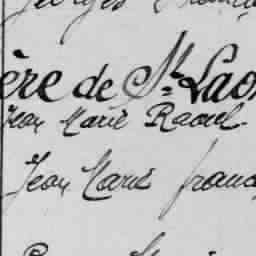 Georges
ère de St. Lao
Jean Marie Raoul
Jean Marie franc